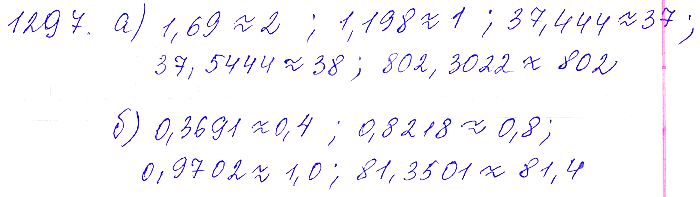 1297. а) 1,69 ≈ 2 ; 1,198 ≈ 1 ; 37,444 ≈ 37 ;
37,5444 ≈ 38 ; 802,3022 ≈ 802
б) 0,3691 ≈ 0,4 ; 0,8218 ≈ 0,8 ;
0,9702 ≈ 1,0 ; 81,3501 ≈ 81,4